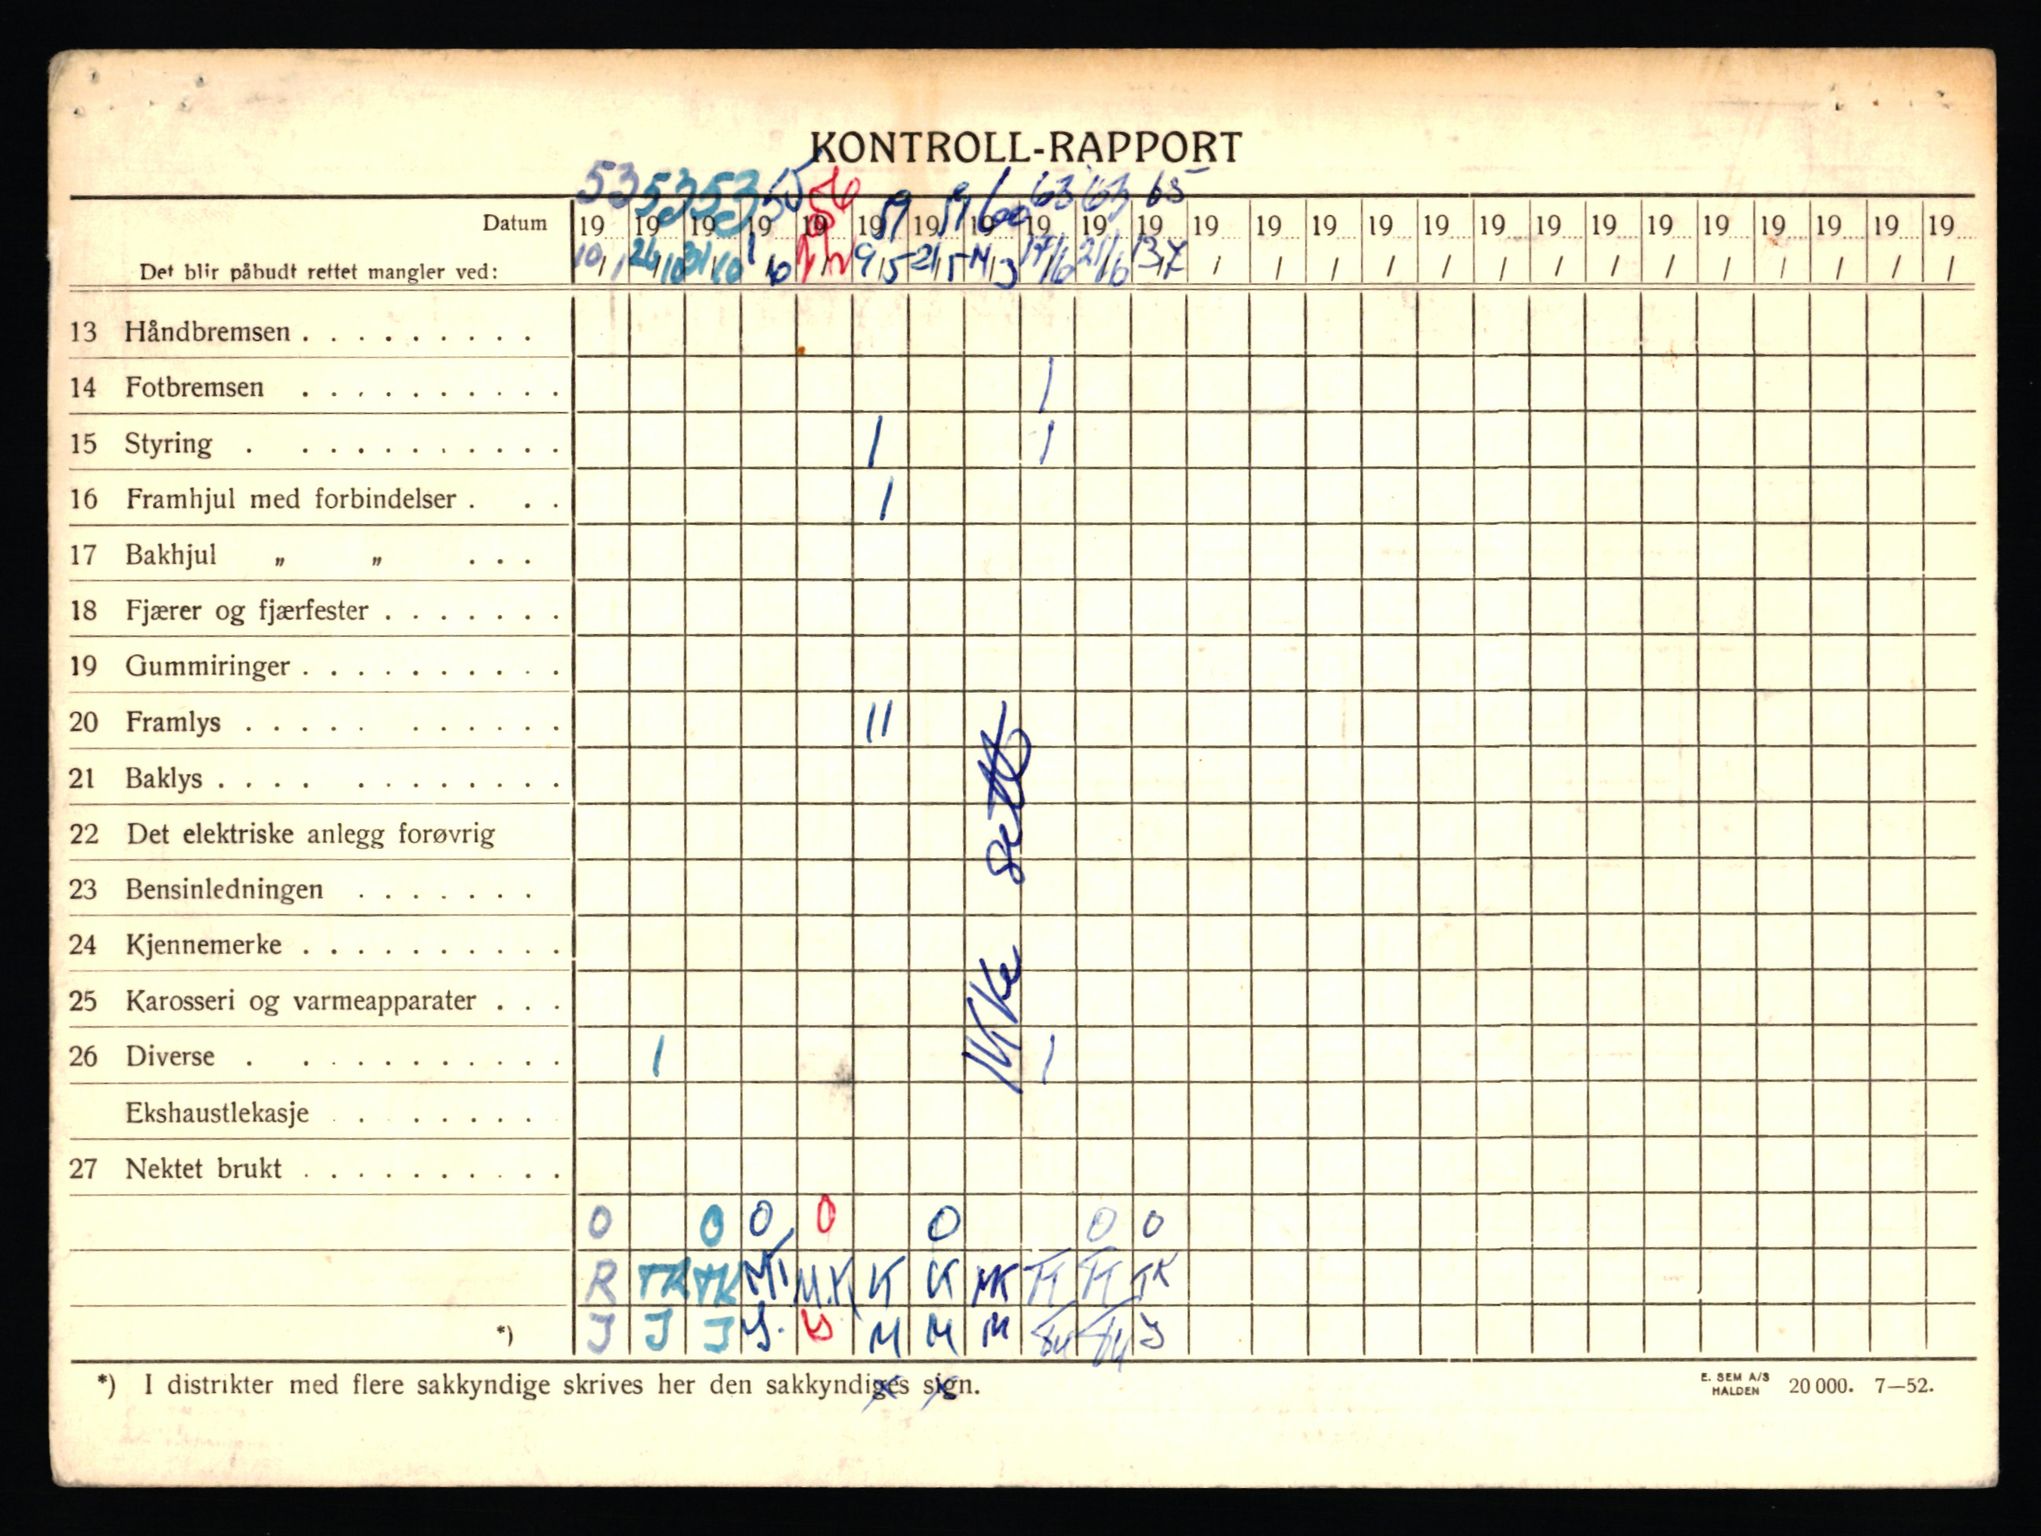 KONTROLL-RAPPORT
53 53 53 55 56 59 59 60 63 63 65
Datum 19 19 19 19 19 19 19 19 19 19 19 19 19 19 19 19 19 19 19 19 19 19 19 19 19
Det blir påbudt rettet mangler ved: 10/1 24/10 31/10 1/10 9/5 21/5 14/3 17/6 21/6 13/7 / / / / / / / / / / / / / /
13 Håndbremsen . . . . . . . . .
14 Fotbremsen . . . . . . . . . . /
15 Styring . . . . . . . . . . . / /
16 Framhjul med forbindelser . . . /
17 Bakhjul „ „ . . .
18 Fjærer og fjærfester . . . . . . .
19 Gummiringer . . . . . . . . . .
20 Framlys . . . . . . . . . . . //
21 Baklys . . . . . . . . . . . .
22 Det elektriske anlegg forøvrig
23 Bensinledningen . . . . . . .
24 Kjennemerke . . . . . . . . . .
25 Karosseri og varmeapparater . . .
26 Diverse . . . . . . . . . . . / /
Ekshaustlekasje . . . . . . . .
27 Nektet brukt . . . . . . . . . .
Ikke sett
0 0 0 0 0 0 0
R TK TK M.K. K K MK TK TK TK
*) J J J M M M J
*) I distrikter med flere sakkyndige skrives her den sakkyndiges sign.
E. SEM A/S
HALDEN 20 000. 7—52.